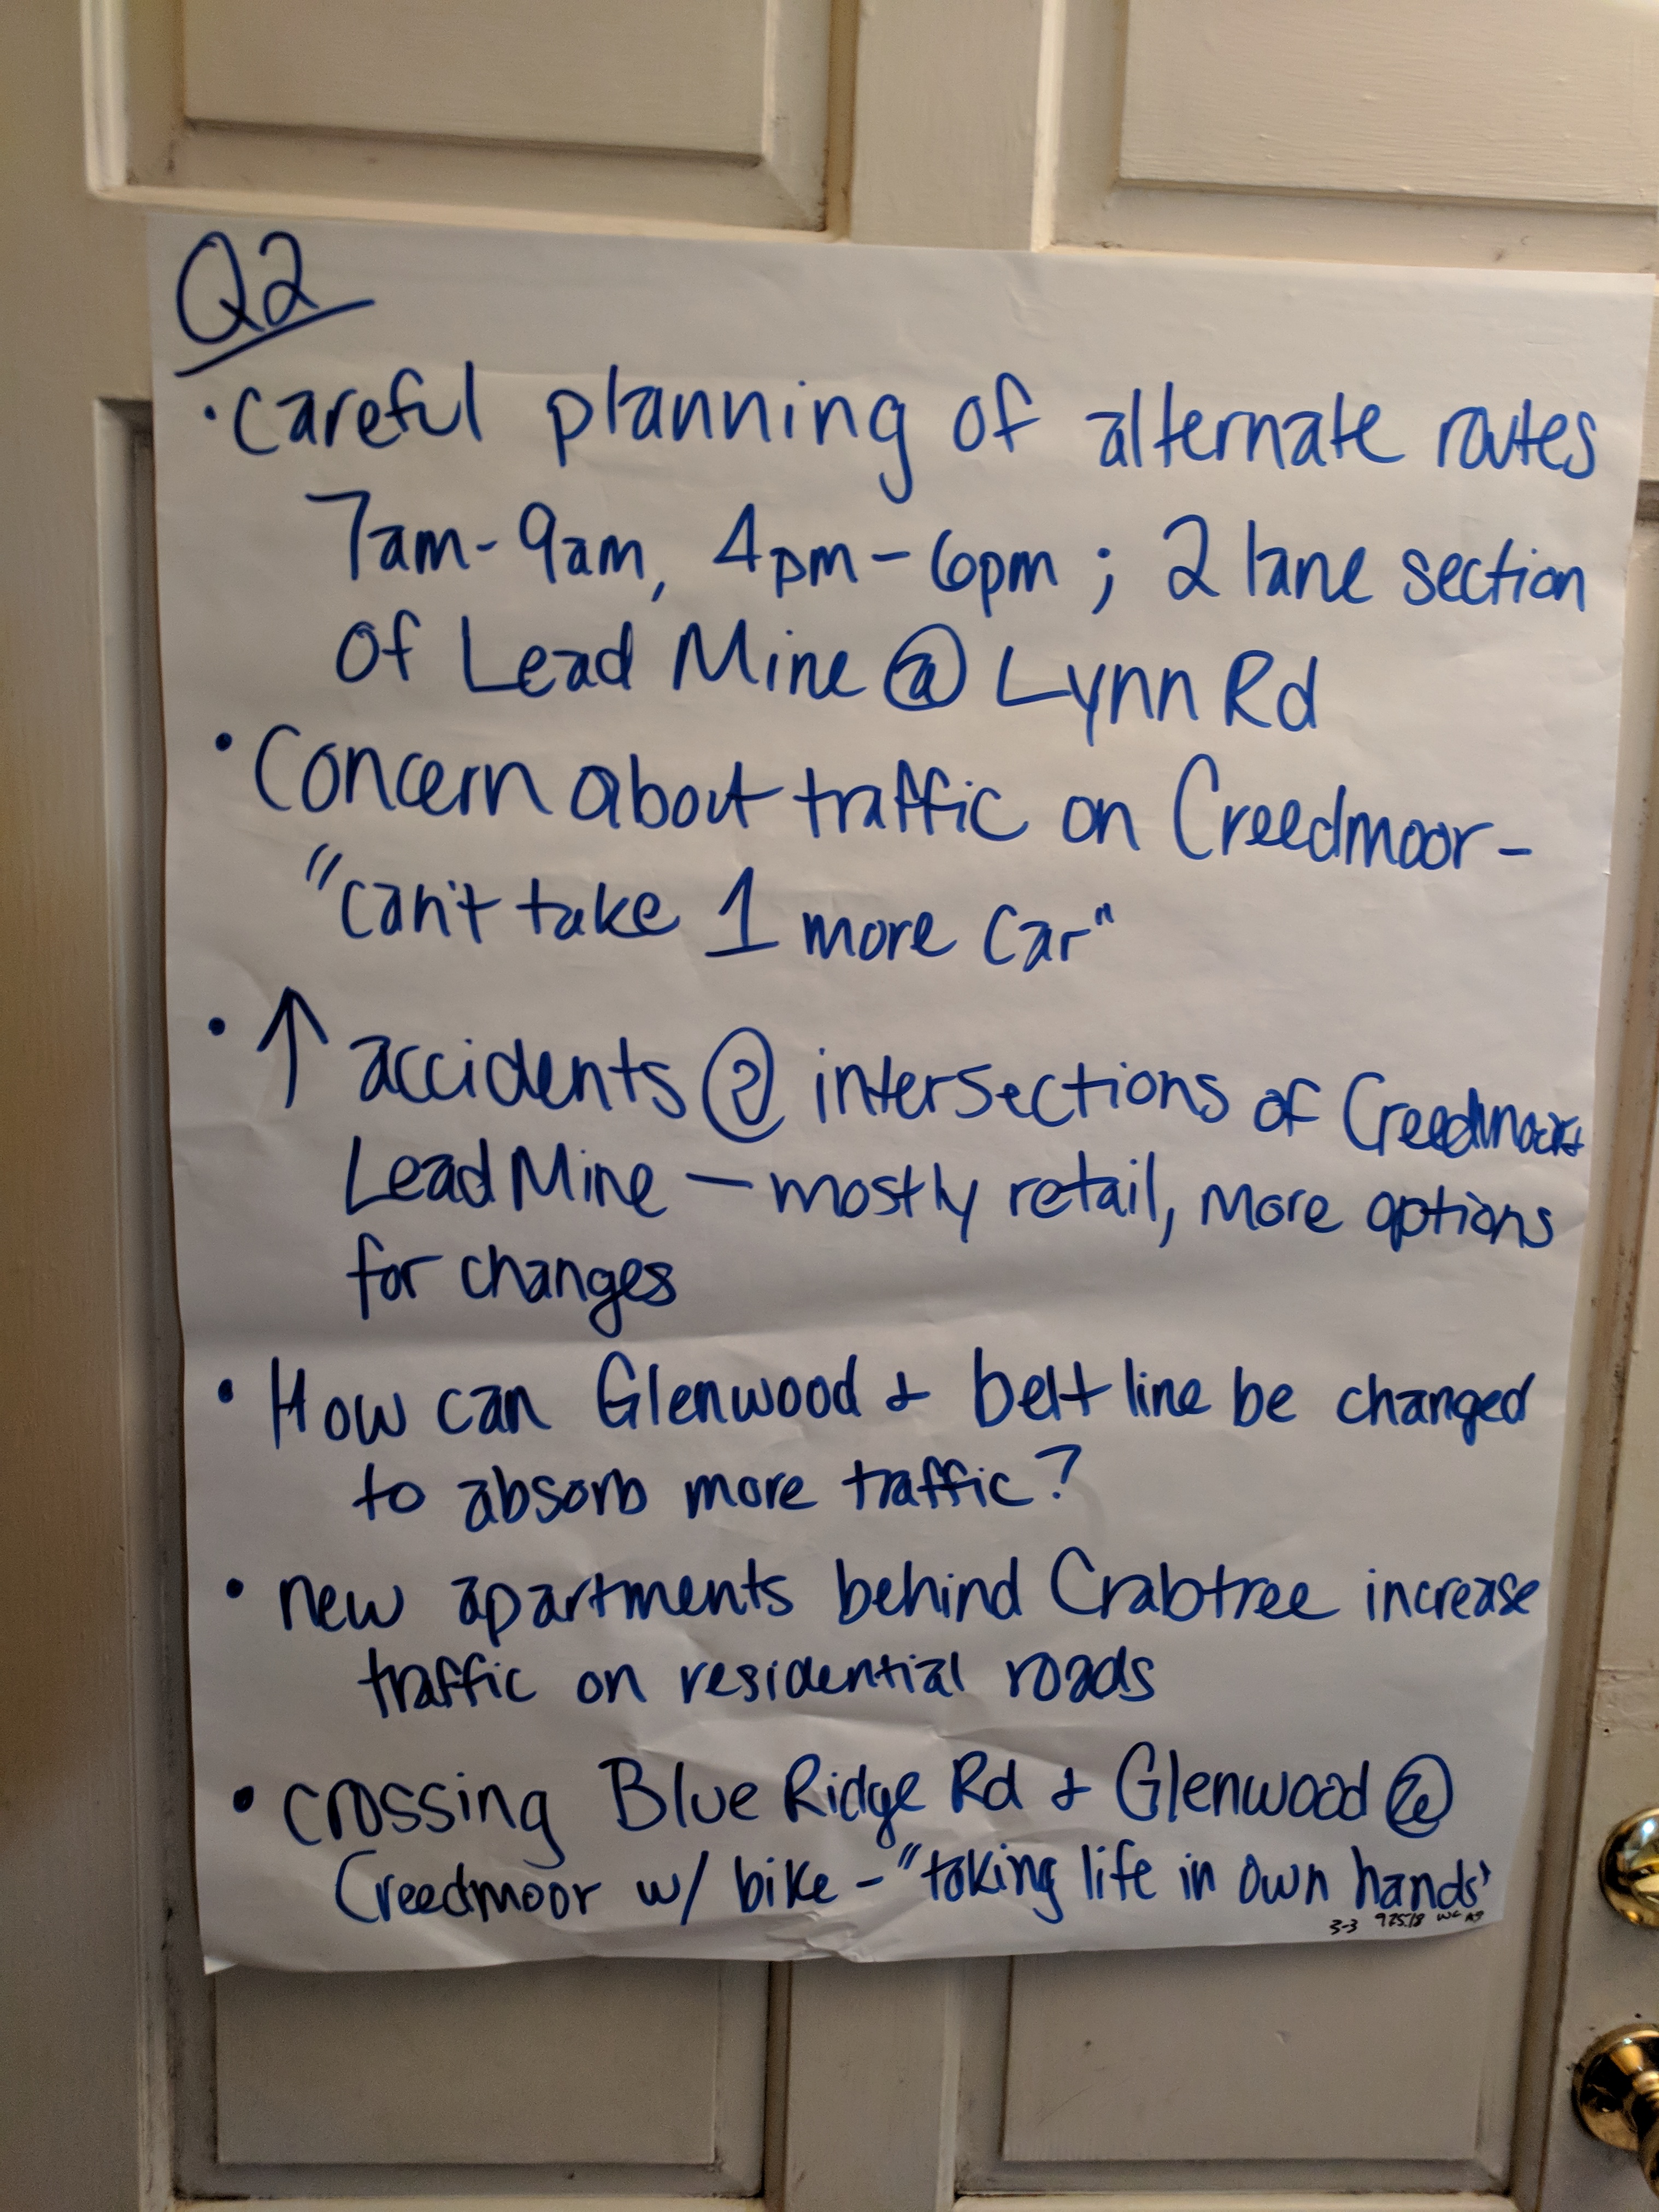 Q2
• Careful planning of alternate routes
7am-9am, 4pm-6pm; 2 lane section
of Lead Mine @ Lynn Rd
• Concern about traffic on Creedmoor -
"can't take 1 more car"
• ↑ accidents @ intersections of Creedmoor +
Lead Mine — mostly retail, more options
for changes
• How can Glenwood + belt line be changed
to absorb more traffic?
• new apartments behind Crabtree increase
traffic on residential roads
• crossing Blue Ridge Rd + Glenwood @
Creedmoor w/ bike - "taking life in own hands"
3-3